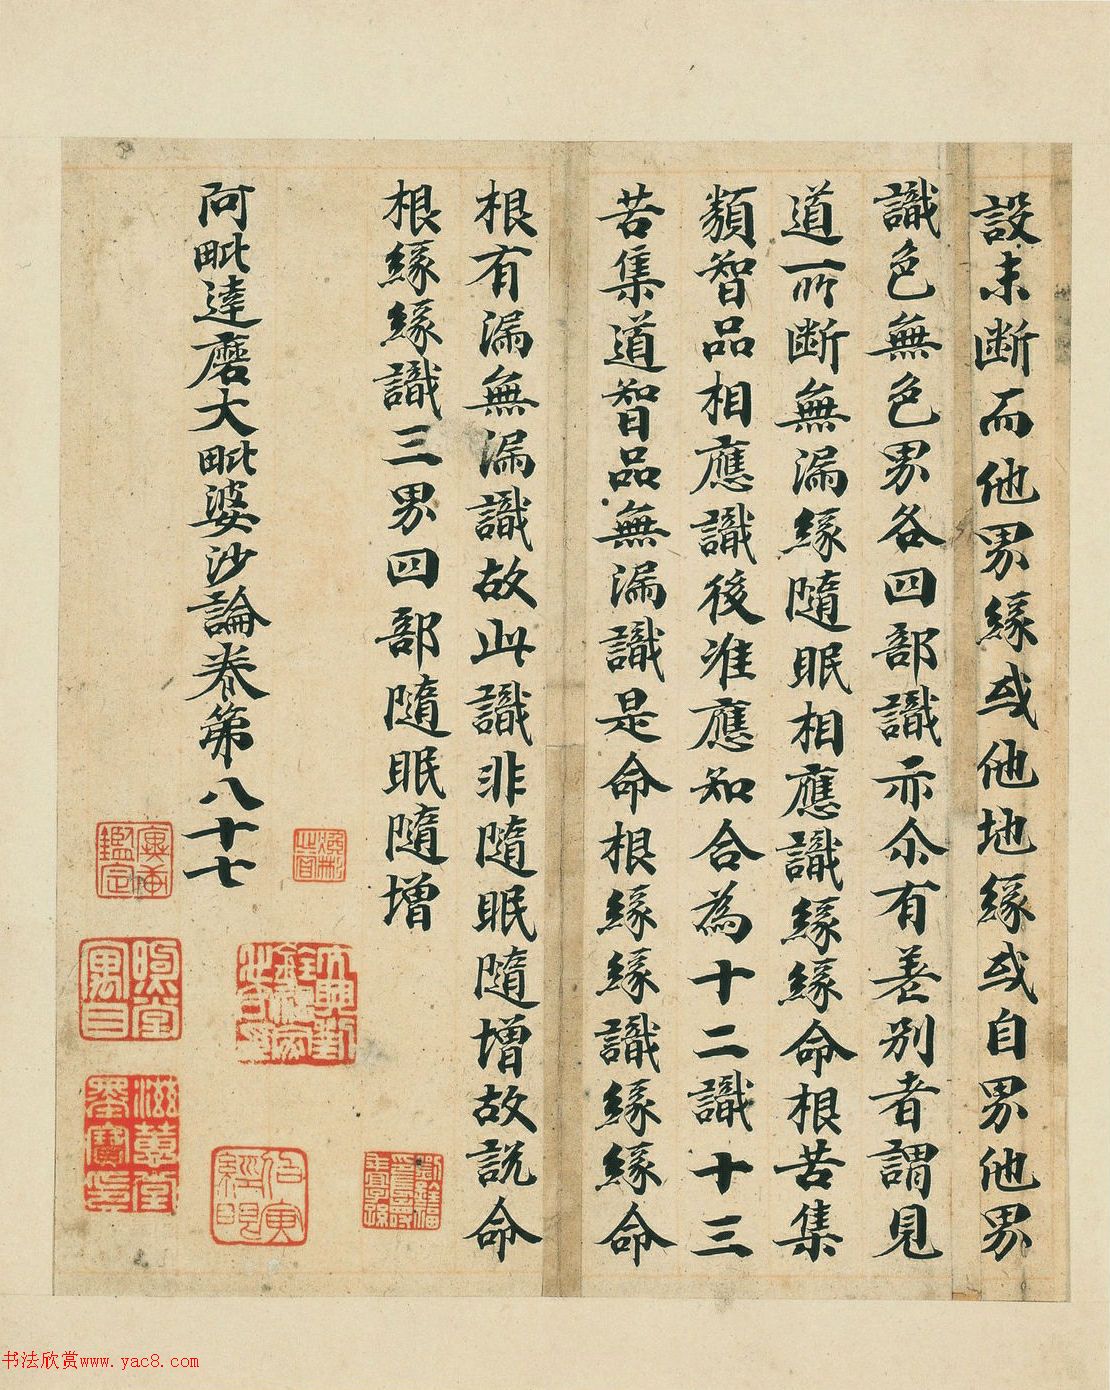 設未断而他界緣或他地緣或自界他界
識色無色界各四部識亦尒有差别者謂見
道所断無漏緣隨眠相應識緣緣命根苦集
類智品相應識後准應知合為十二識十三
苦集道智品無漏識是命根緣緣識緣緣命
根有漏無漏識故此識非隨眠隨增故説命
根緣緣識三界四部隨眠隨增
阿毗達磨大毗婆沙論卷第八十七
书法欣赏www.yac8.com